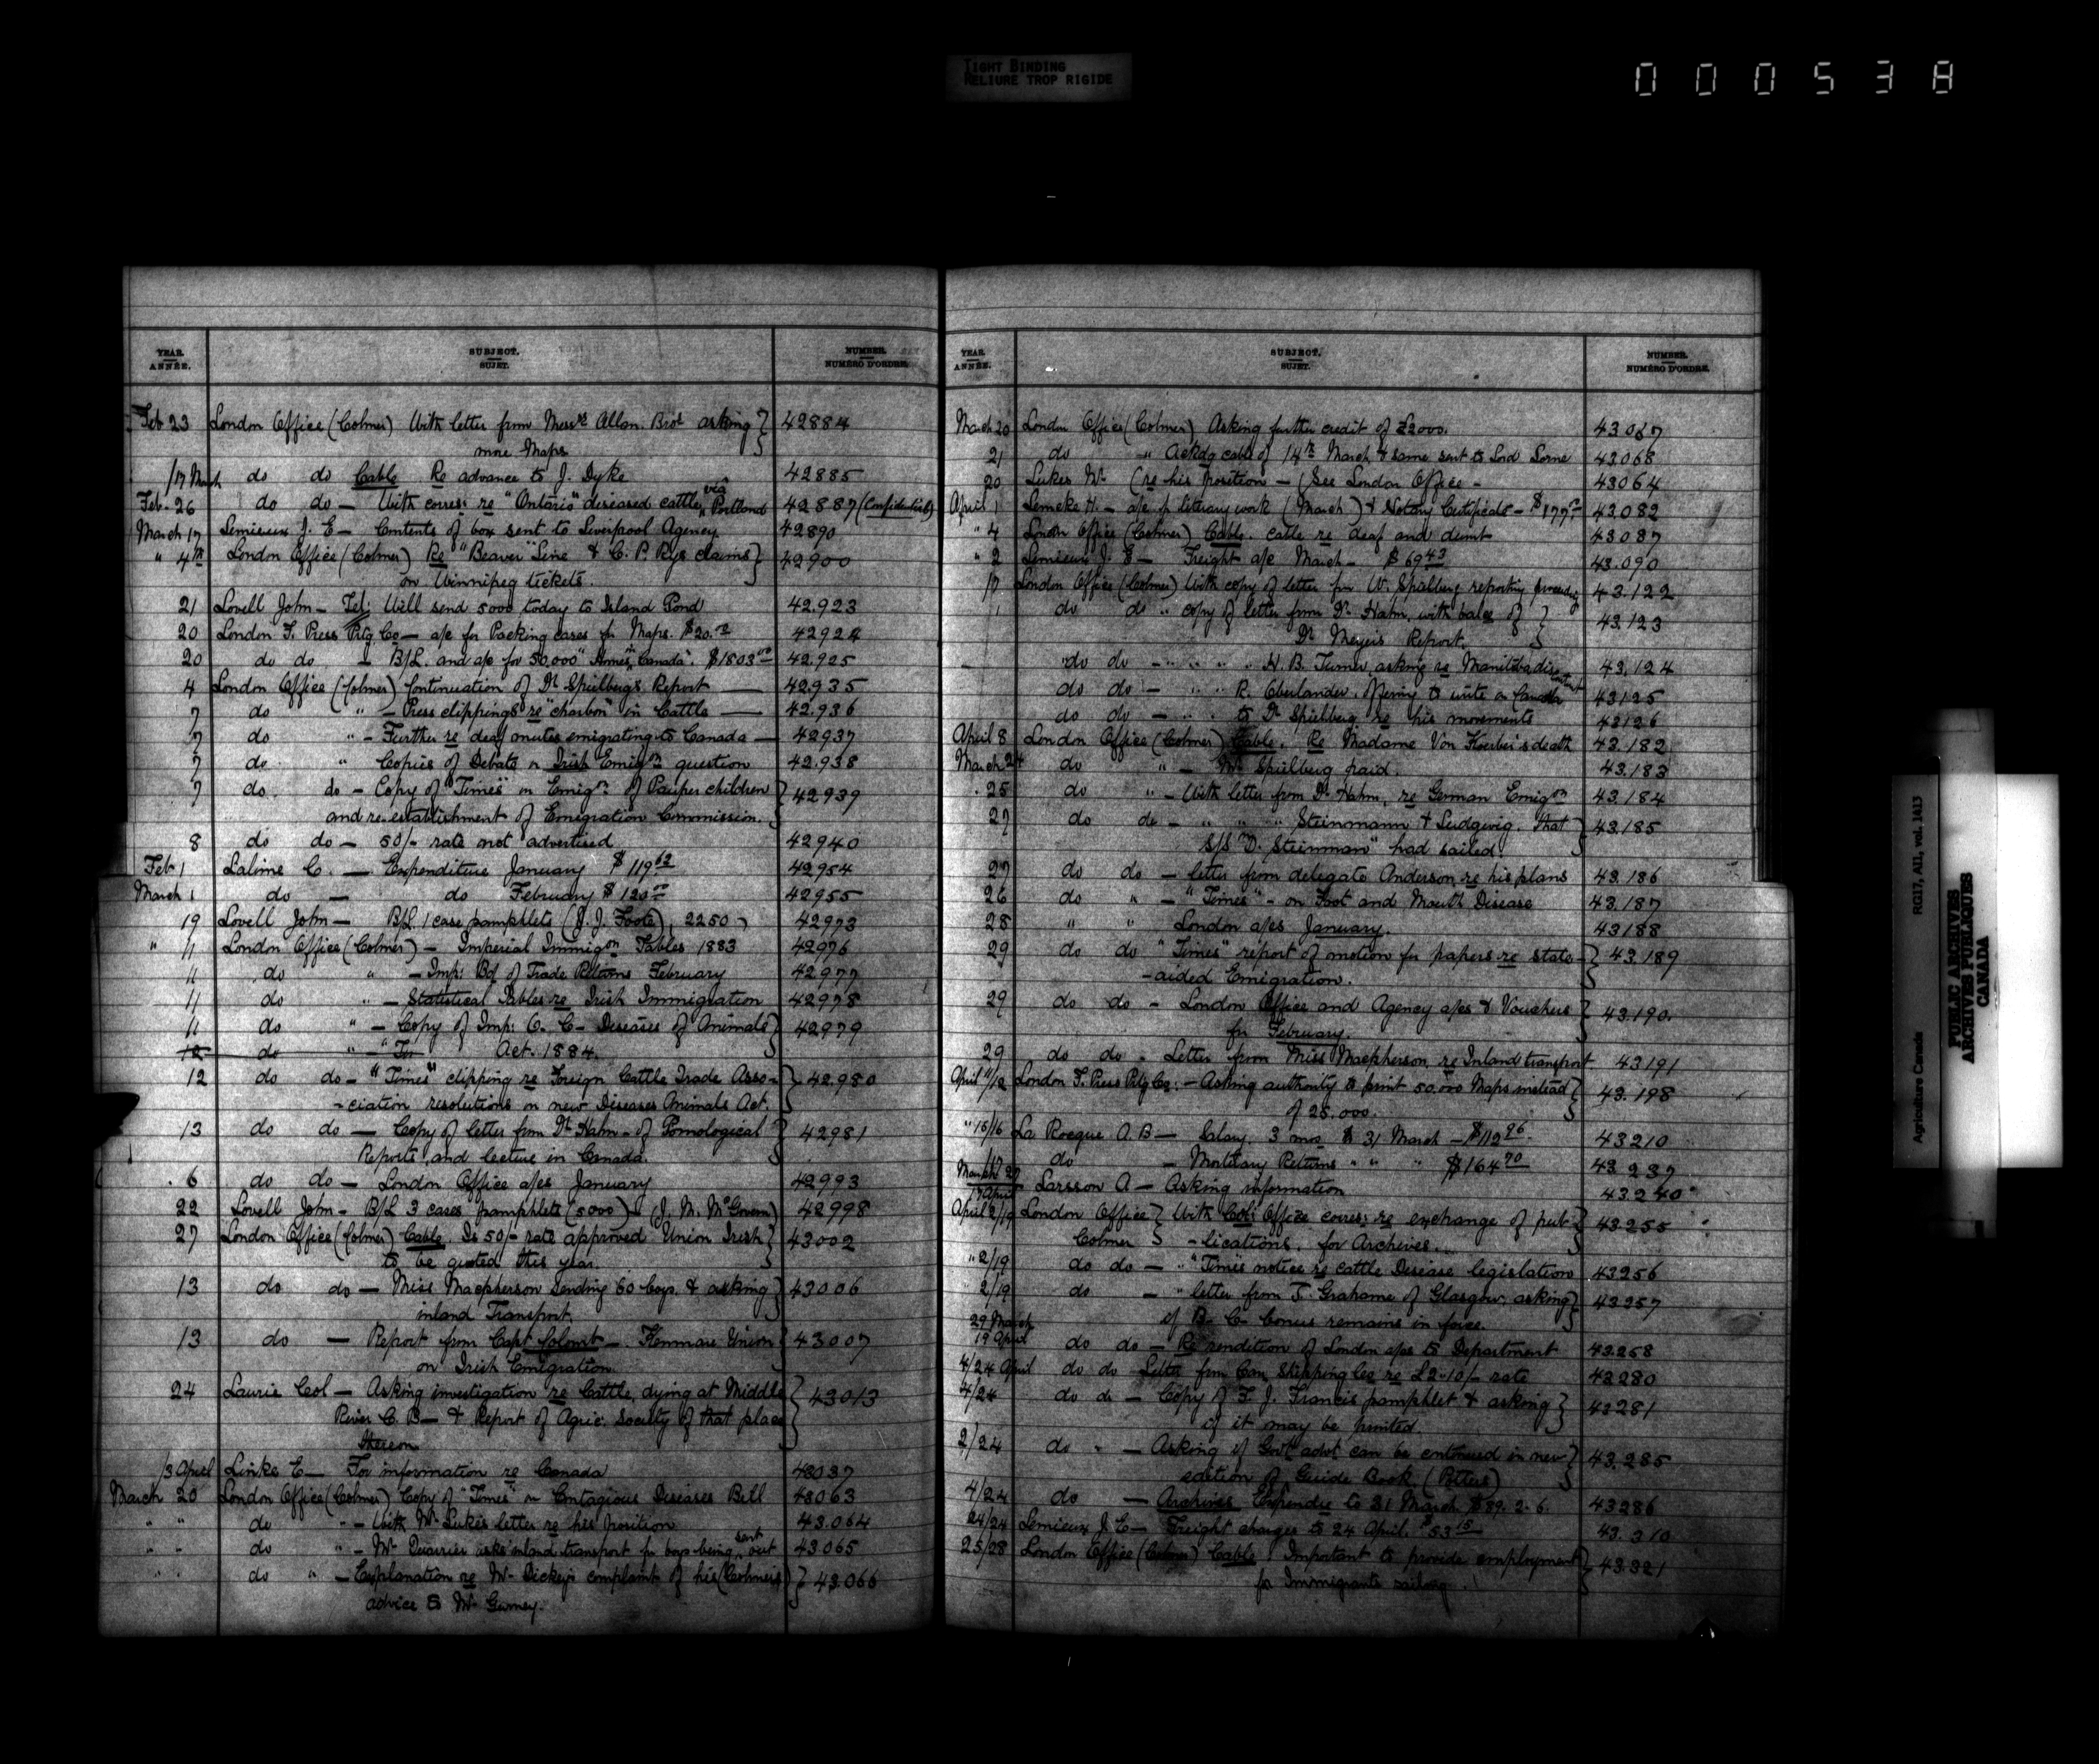 TIGHT BINDING
RELIURE TROP RIGIDE
000538
YEAR. ANNÉE. SUBJECT. SUJET. NUMBER. NUMÉRO D'ORDRE.
Feb 23 London Office (Colmer) With letter from Messrs Allan Bros asking } 42884
more Maps
/17 March do do Cable Re advance to J. Dyke 42885
Feb. 26 do do — With corres: re "Ontario" diseased cattle via Portland 42887 (Confidential)
March 17 Lemieux J. E — Contents of box sent to Liverpool Agency 42890
" 4th London Office (Colmer) Re "Beaver" Line & C. P. Rys claims } 42900
on Winnipeg tickets.
21 Lovell John — Tel. Will send 5000 today to Island Pond 42.923
20 London F. Press Ptg Co — a/c for Packing cases for Maps. $20.00 42924
20 do do — B/L. and a/c for 50,000 "Homes, Canada". $1803 42.925
4 London Office (Colmer) Continuation of Dr Spielberg's Report — 42.935
7 do " — Press clippings re "charbon" in Cattle — 42.936
7 do " — Further re deaf mutes emigrating to Canada — 42937
7 do " Copies of Debate on Irish Emign question 42.938
7 do. do — Copy of "Times" on Emign of Pauper children } 42939
and re-establishment of Emigration Commission.
8 do do — 50/- rate not advertised 42940
Feb 1 Lalime C. — Expenditure January $119 62 42954
March 1 do — do February $120 42955
19 Lovell John — B/L 1 case pamphlets (J. J. Foote) 2250 42973
" 11 London Office (Colmer) — Imperial Immigon Tables 1883 42976
11 do " — Imp: Bd of Trade Returns February 42977
11 do " — Statistical Tables re Irish Immigration 42978
11 do " — Copy of Imp: O. C — Diseases of Animals } 42979
12 do " — Act. 1884.
12 do do — "Times" clipping re Foreign Cattle Trade Asso- } 42.980
-ciation resolutions on new Diseases Animals Act.
13 do do — Copy of letter from Dr Hahn — of Pomological } 42981
Reports, and lecture in Canada.
. 6 do do — London Office a/cs January 42993
22 Lovell John — B/L 3 cases pamphlets (5000) (J. M. McGovern) 42998
27 London Office (Colmer) Cable. Is 50/- rate approved Union Irish } 43002
to be quoted this year.
13 do do — Miss Macpherson sending 60 boys & asking } 43006
inland Transport.
13 do — Report from Capt Colomb — Kenmare Union } 43007
on Irish Emigration.
24 Laurie Col — Asking investigation re Cattle, dying at Middle } 43013
River C. B — & Report of Agric. Society of that place
thereon
/3 April Linke E — For information re Canada 43037
March 20 London Office (Colmer) Copy of "Times" on Contagious Diseases Bill 43063
" " do " — With Mr Luke's letter re his position 43.064
" " do " — Mr Quarrier asks inland transport for boys being sent out 43065
" " do " — Explanation re Mr Dickey's complaint of his (Colmer's) } 43.066
advice to Mr Gurney.
YEAR. ANNÉE. SUBJECT. SUJET. NUMBER. NUMÉRO D'ORDRE.
March 20 London Office (Colmer) Asking further credit of £2000. 43067
21 do " Ackdg cable of 14th March & same sent to Lord Lorne 43068
20 Lukes Mr (re his position — (See London Office — 43064
April 1 Lemcke H. — a/c for literary work (March) & Notary Certificate — $177 43.082
" 4 London Office (Colmer) Cable. Cable re deaf and dumb 43087
" 2 Lemieux J. E — Freight a/c March — $69 43 43.090
17 London Office (Colmer) With copy of letter fm W. Spielberg reporting 43.122
do do " copy of letter from Dr Hahn, with balce of } 43.123
Dr Meyer's Report.
do do — " " " " H. B. Turner asking re Manitoba discontent 43.124
do do — " " " R. Oberlander, offering to write on Canada 43125
do do — " " " to Dr Spielberg re his movements 43126
April 8 London Office (Colmer) Cable. Re Madame Von Koerber's death 43.182
March 24 do " — Mr Spielberg paid. 43.183
. 25 do " — With letter from Dr Hahn, re German Emigon 43.184
27 do do — " " " Steinmann & Ludewig. that } 43.185
S/S "D. Steinman" had sailed.
27 do do — letter from delegate Anderson re his plans 43.186
26 do " — "Times" — on Foot and Mouth Disease 43.187
28 " " — London a/cs January. 43188
29 do do "Times" report of motion for papers re state- } 43.189
-aided Emigration.
29 do do — London Office and Agency a/cs & Vouchers } 43.190.
for February.
29 do do — Letter from Miss Macpherson re Inland transport 43191
April 11/12 London F. Press Ptg Co: — Asking authority to print 50.000 Maps instead } 43.198
of 25.000.
" 15/16 La Rocque A. B — Salary, 3 mos $ 31 March — $112 96. 43210
/17 do — Mortuary Returns " " " $164 70 43.237
March 27 /17 April Larsson A — Asking information 43.240
April 2/19 London Office } With Col: Office corres: re exchange of pub- } 43.255
Colmer } -lications, for Archives.
" 2/19 do do — "Times" notice re cattle Disease legislation 43256
2/19 do — " letter from T. Grahame of Glasgow, asking } 43257
if B. C. bonus remains in force.
29 March 19 April do do — Re rendition of London a/cs to Department 43.258
4/24 April do do Letter from Can. Shipping Co re £2-10/- rate 43280
4/24 do do — Copy of F. J. Francis pamphlet & asking } 43281
if it may be printed.
2/24 do " — Asking if Govt advt can be continued in new } 43.285
edition of Guide Book (Potters)
4/24 do — Archives Expendre to 31 March $89. 2. 6. 43286
24/24 Lemieux J. E — Freight charges to 24 April. $53 15 43.310
25/28 London Office (Colmer) Cable. Important to provide employment } 43.321
for Immigrants sailing.
Agriculture Canada RG17, AII, vol. 1413
PUBLIC ARCHIVES
ARCHIVES PUBLIQUES
CANADA